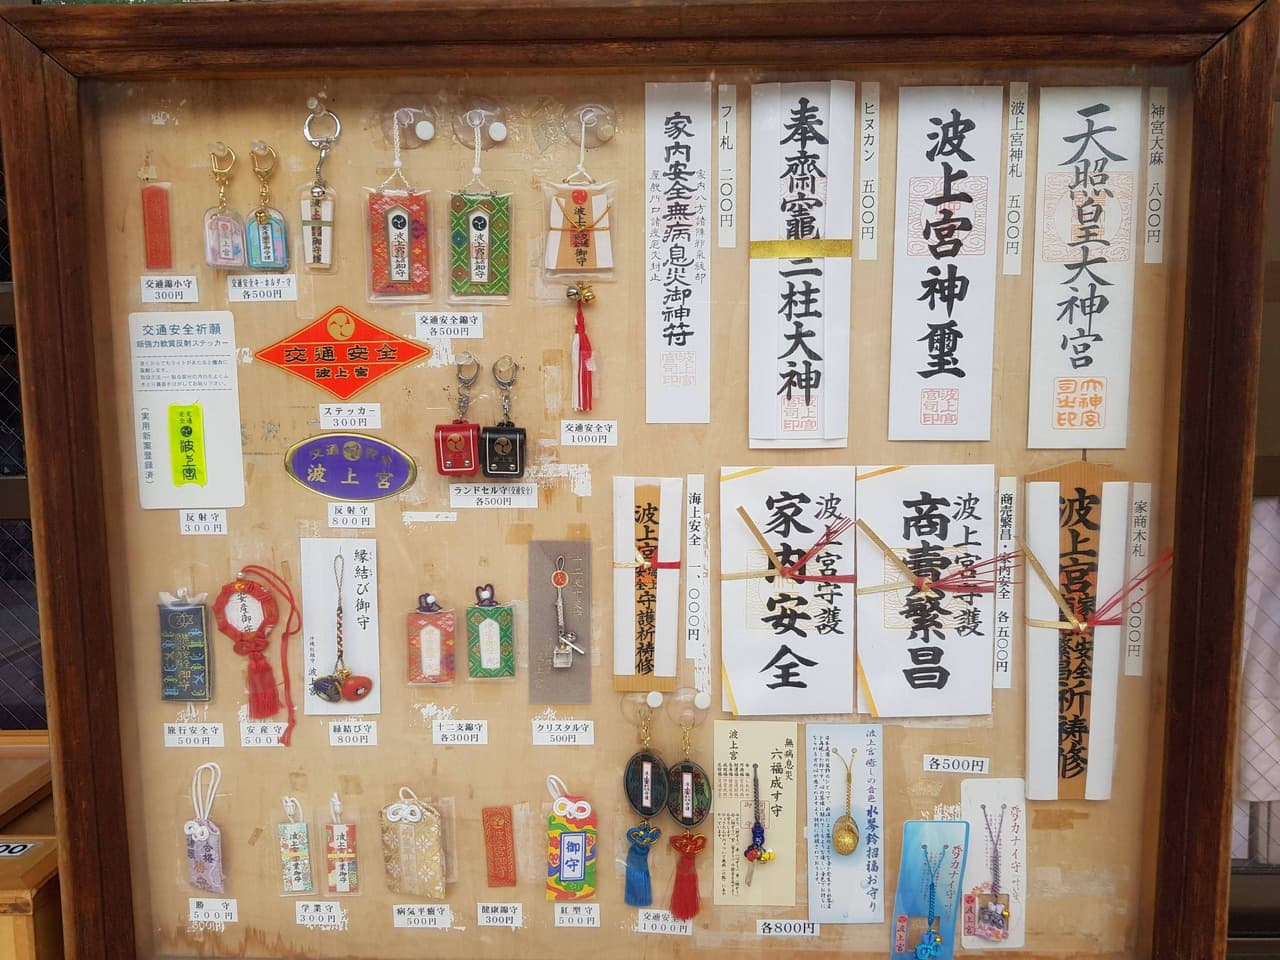 神宮大麻 八〇〇円
天照皇大神宮
大神宮司之印
波上宮神札 五〇〇円
波上宮神璽
波上宮司印
ヒヌカン 五〇〇円
奉齋竈三柱大神
フー札 二〇〇円
家内安全無病息災御神符
交通錦小守
300円
交通安全キーホルダー守
各500円
交通安全錦守
各500円
交通安全守
1000円
交通安全祈願
超強力軟質反射ステッカー
(実用新案登録済)
反射守
300円
交通安全
波上宮
ステッカー
300円
交通安全
波上宮
反射守
800円
ランドセル守(交通安全)
各500円
家商木札 一、〇〇〇円
商売繁昌・家内安全 各五〇〇円
波上宮守護
商売繁昌
波上宮守護
家内安全
海上安全 一、〇〇〇円
波上宮海上安全守護祈祷修
旅行安全守
500円
安産御守
安産守
500円
縁結び御守
波上宮
縁結び守
800円
十二支錦守
各300円
クリスタル守
500円
合格
勝守
500円
学業守
300円
病気平癒守
500円
健康錦守
300円
御守
紅型守
500円
交通安全守
1000円
無病息災
六福成す守
波上宮
波上宮癒しの音色
水琴鈴招福お守り
各800円
各500円
波上宮
波上宮